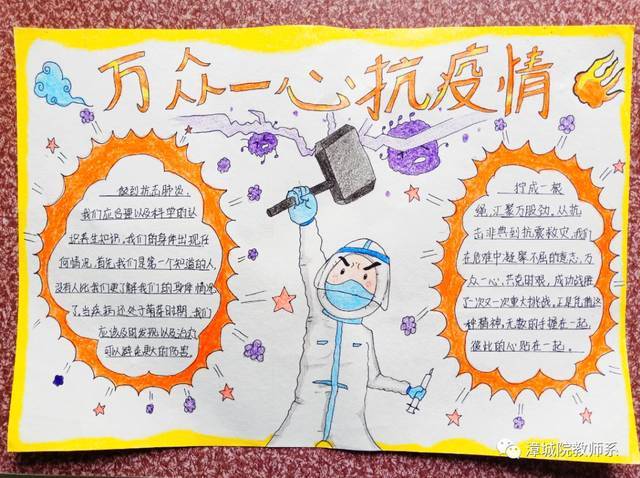 万众一心抗疫情
做到抗击肺炎,
我们应合理以及科学的认
识养生知识,我们的身体出现任
何情况,首先我们是第一个知道的人,
没有人比我们更了解我们的身体情况
了,当疾病还处于萌芽时期,我们
应该及时发现以及治疗
可以避免更大的伤害。
拧成一根
绳,汇聚万股劲,从抗
击非典到抗震救灾,我们
在危难中凝聚不屈的意志,万
众一心,共克时艰,成功战胜
了一次又一次重大挑战。正是凭借这
种精神,无数的手握在一起,
彼此的心贴在一起。
漳城院教师系